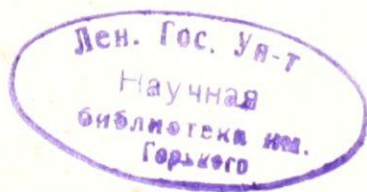 Лен. Гос. Ун-т
Научная
библиотека им.
Горького